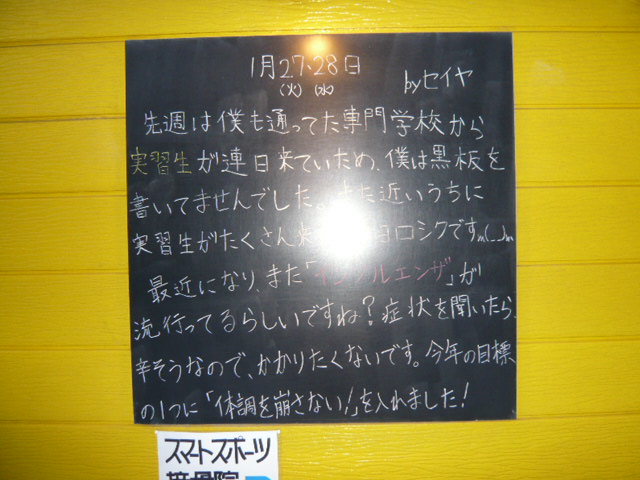 1月27・28日
(火) (水) byセイヤ
先週は僕も通ってた専門学校から
実習生が連日来ていため、僕は黒板を
書いてませんでした。また近いうちに
実習生がたくさん来 ヨロシクですm(_ _)m
最近になり、また「インフルエンザ」が
流行ってるらしいですね?症状を聞いたら、
辛そうなので、かかりたくないです。今年の目標
の1つに「体調を崩さない!」を入れました!
スマートスポーツ
接骨院